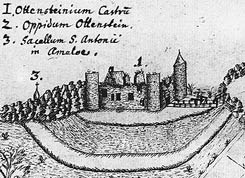 1 Ottensteinium Castrū
2. Oppidum Ottenstein.
3. Sacellum S. Antonii
in Amaloe.
1
3.